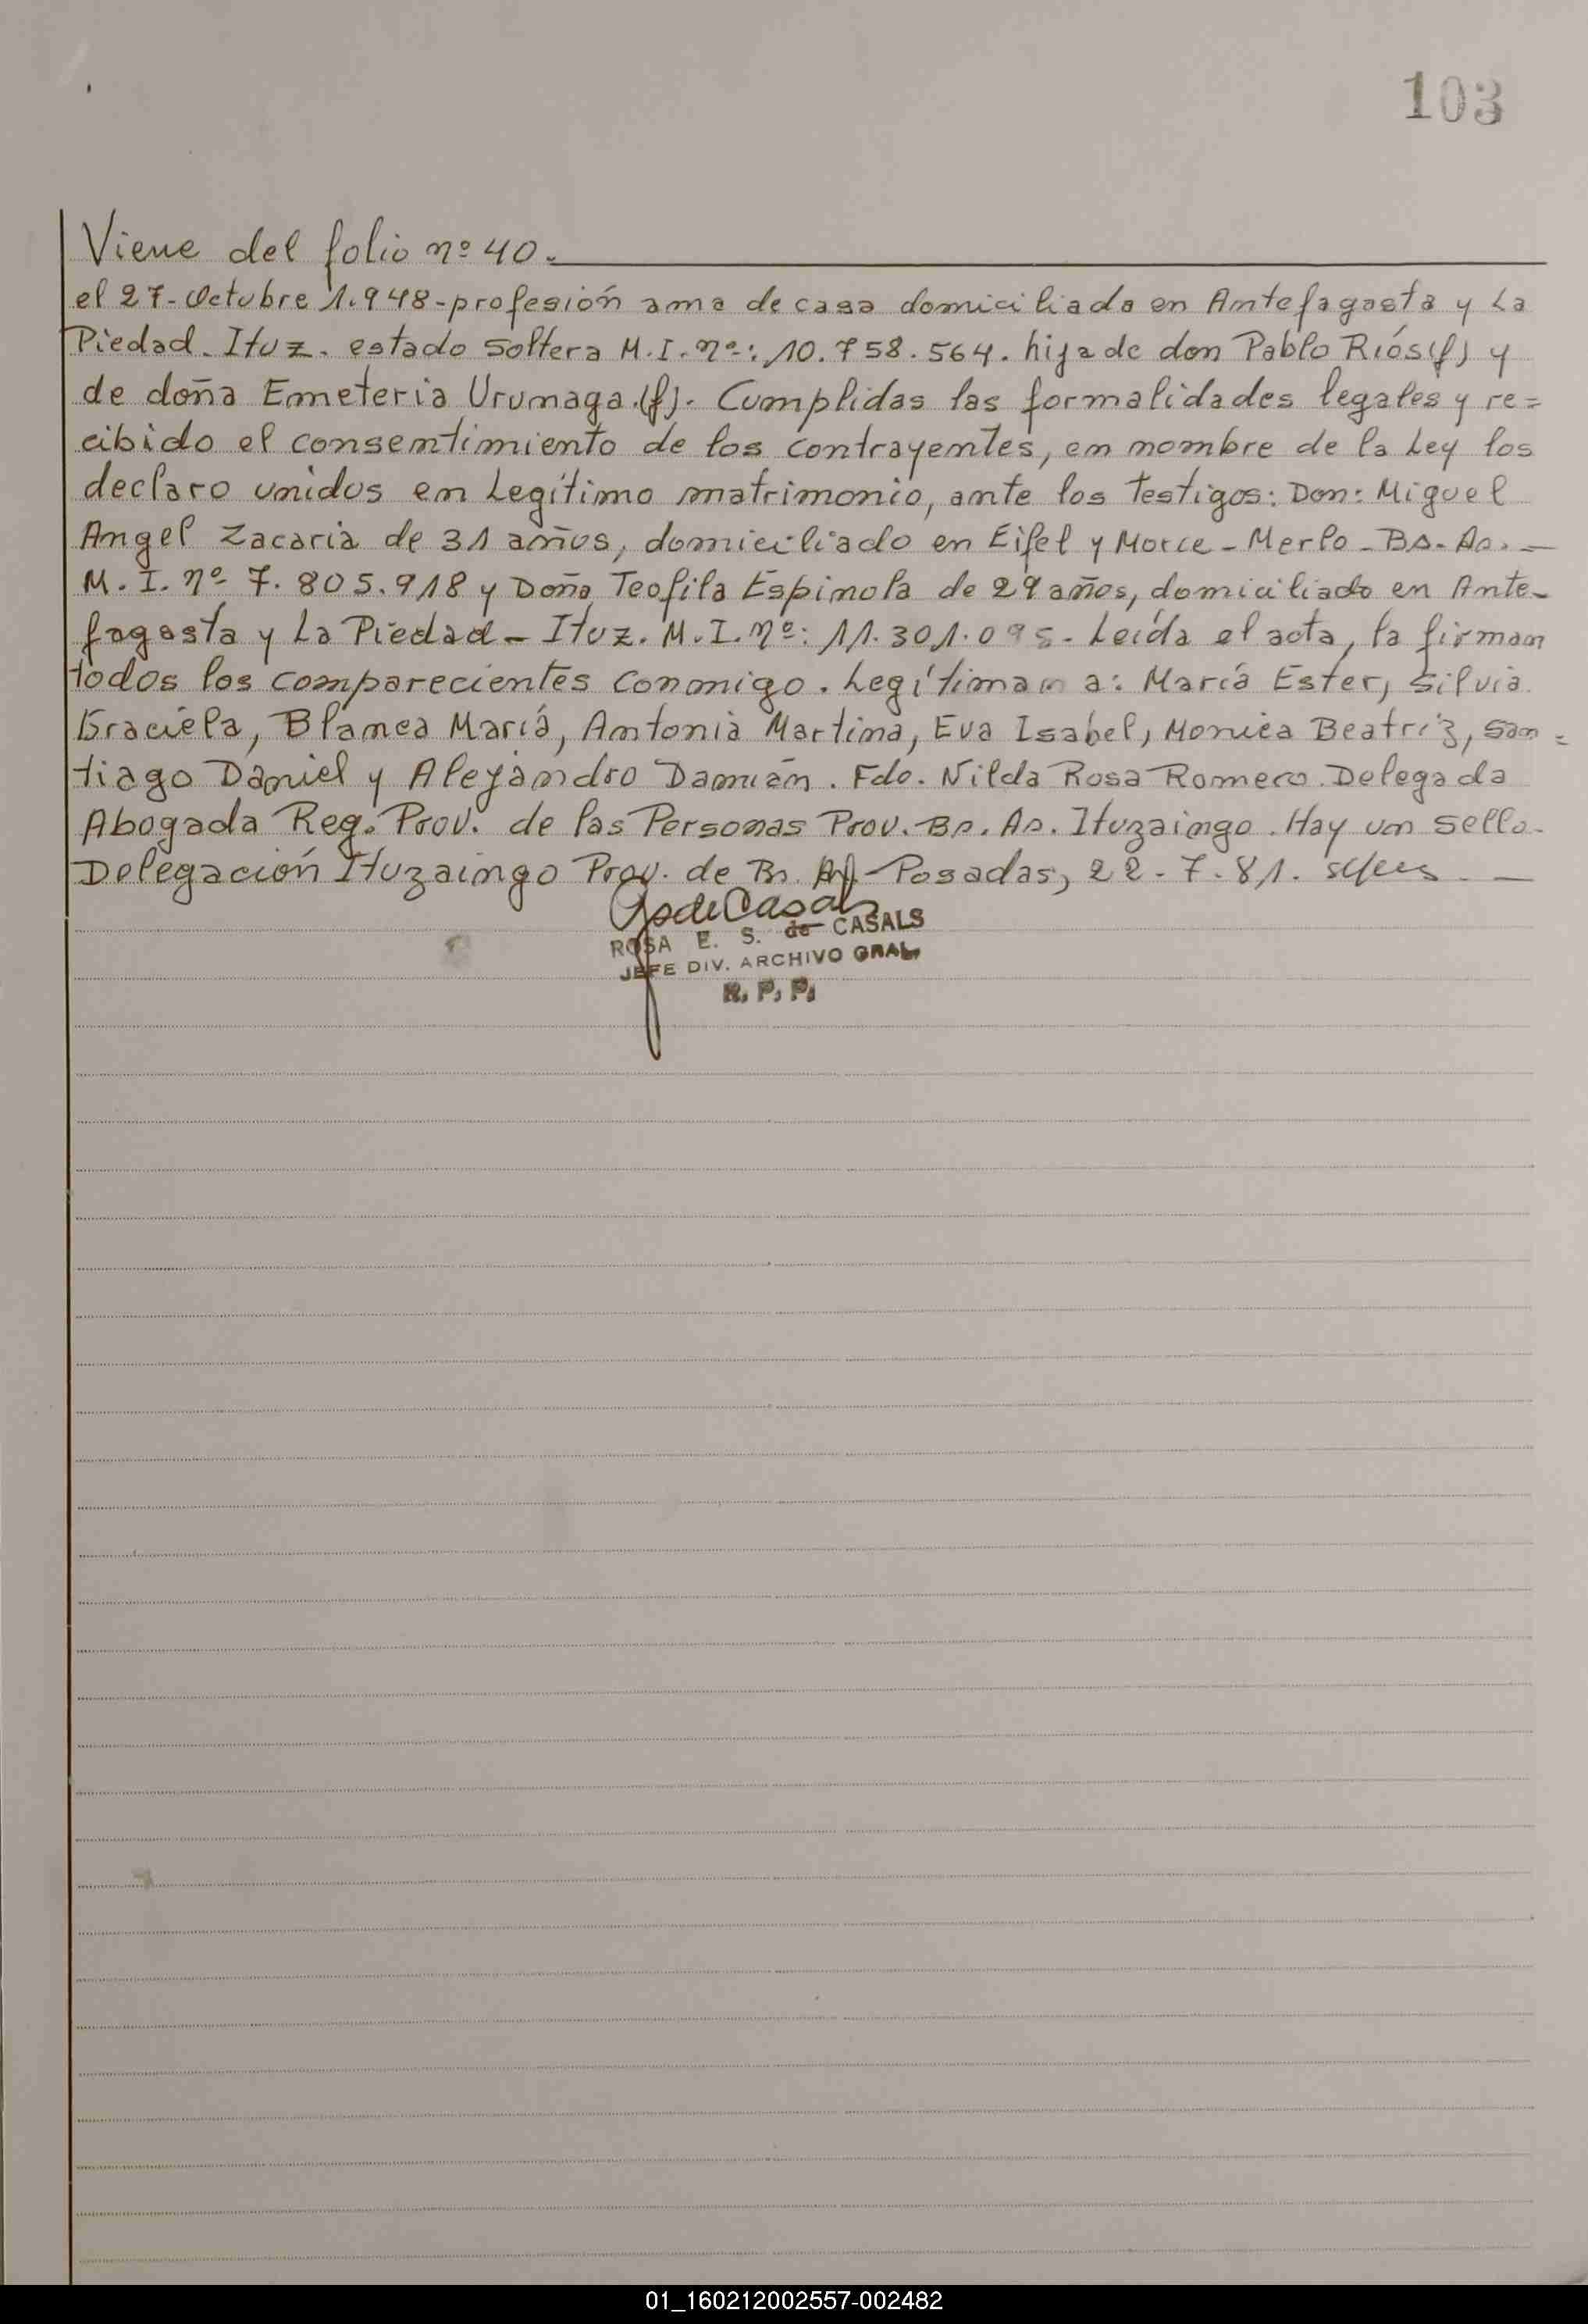 103
Viene del folio nº 40.
el 27-Octubre 1.948-profesión ama de casa domiciliada en Antefagasta y La
Piedad. Ituz. estado soltera M.I.nº: 10.758.564. hija de don Pablo Ríos(f) y
de doña Emeteria Urumaga.(f). Cumplidas las formalidades legales y re=
cibido el consentimiento de los contrayentes, en nombre de la Ley los
declaro unidos en Legítimo matrimonio, ante los testigos: Don: Miguel
Angel Zacaria de 31 años, domiciliado en Eifel y Morce - Merlo - Bs. As. -
M. I. nº 7.805.918 y Doña Teofila Espinola de 29 años, domiciliada en Ante-
fagasta y La Piedad - Ituz. M.I.nº: 11.301.095- Leída el acta, la firman
todos los comparecientes conmigo. Legítiman a: María Ester, Silvia
Graciela, Blanca María, Antonia Martina, Eva Isabel, Monica Beatriz, San=
tiago Daniel y Alejandro Damián. Fdo. Nilda Rosa Romero Delegada
Abogada Reg. Prov. de las Personas Prov. Bs. As. Ituzaingo. Hay un sello.
Delegación Ituzaingo Prov. de Bs. As. - Posadas, 22-7-81.
ROSA E. S. de CASALS
JEFE DIV. ARCHIVO GRAL.
R. P. P.
01_160212002557-002482